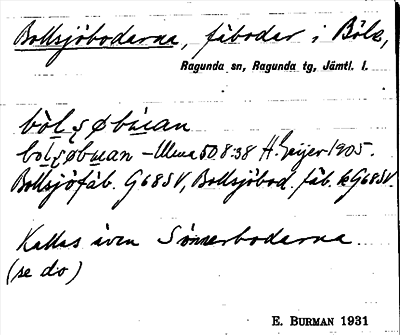 Bollsjöbodarna, fäbodar i Böle,
Ragunda sn, Ragunda tg, Jämtl. l.
bòlʂøbùan
bolʂøbuan – 50. 8. 38 H. Geijer 1905.
Bollsjöfäb. G68SV, Bollsjöbod. fäb. kG68SV.
Kallas även Sönnerbodarna
(se do)
E. BURMAN 1931